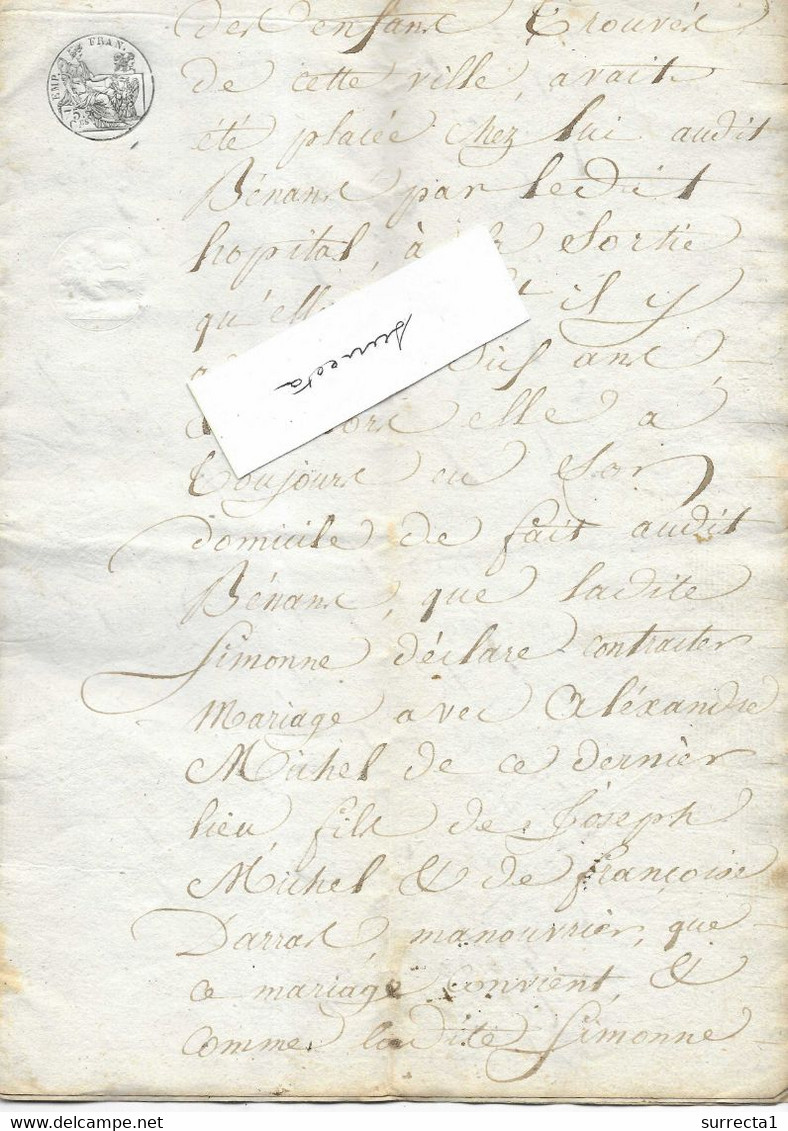 EMP. FRAN.
des enfans trouvés
de cette ville, avait
été placée chez lui audit
Bénans par ledit
hopital, à la sortie
qu'elle il y
dix ans
lors elle a
toujours eu son
domicile de fait audit
Bénans, que ladite
Simonne déclare contracter
mariage avec Aléxandre
Michel de ce dernier
lieu, fils de Joseph
Michel & de françoise
Darras, manouvrier, que
ce mariage convient, &
comme ladite Simonne
surrecta
delcampe.net
surrecta1